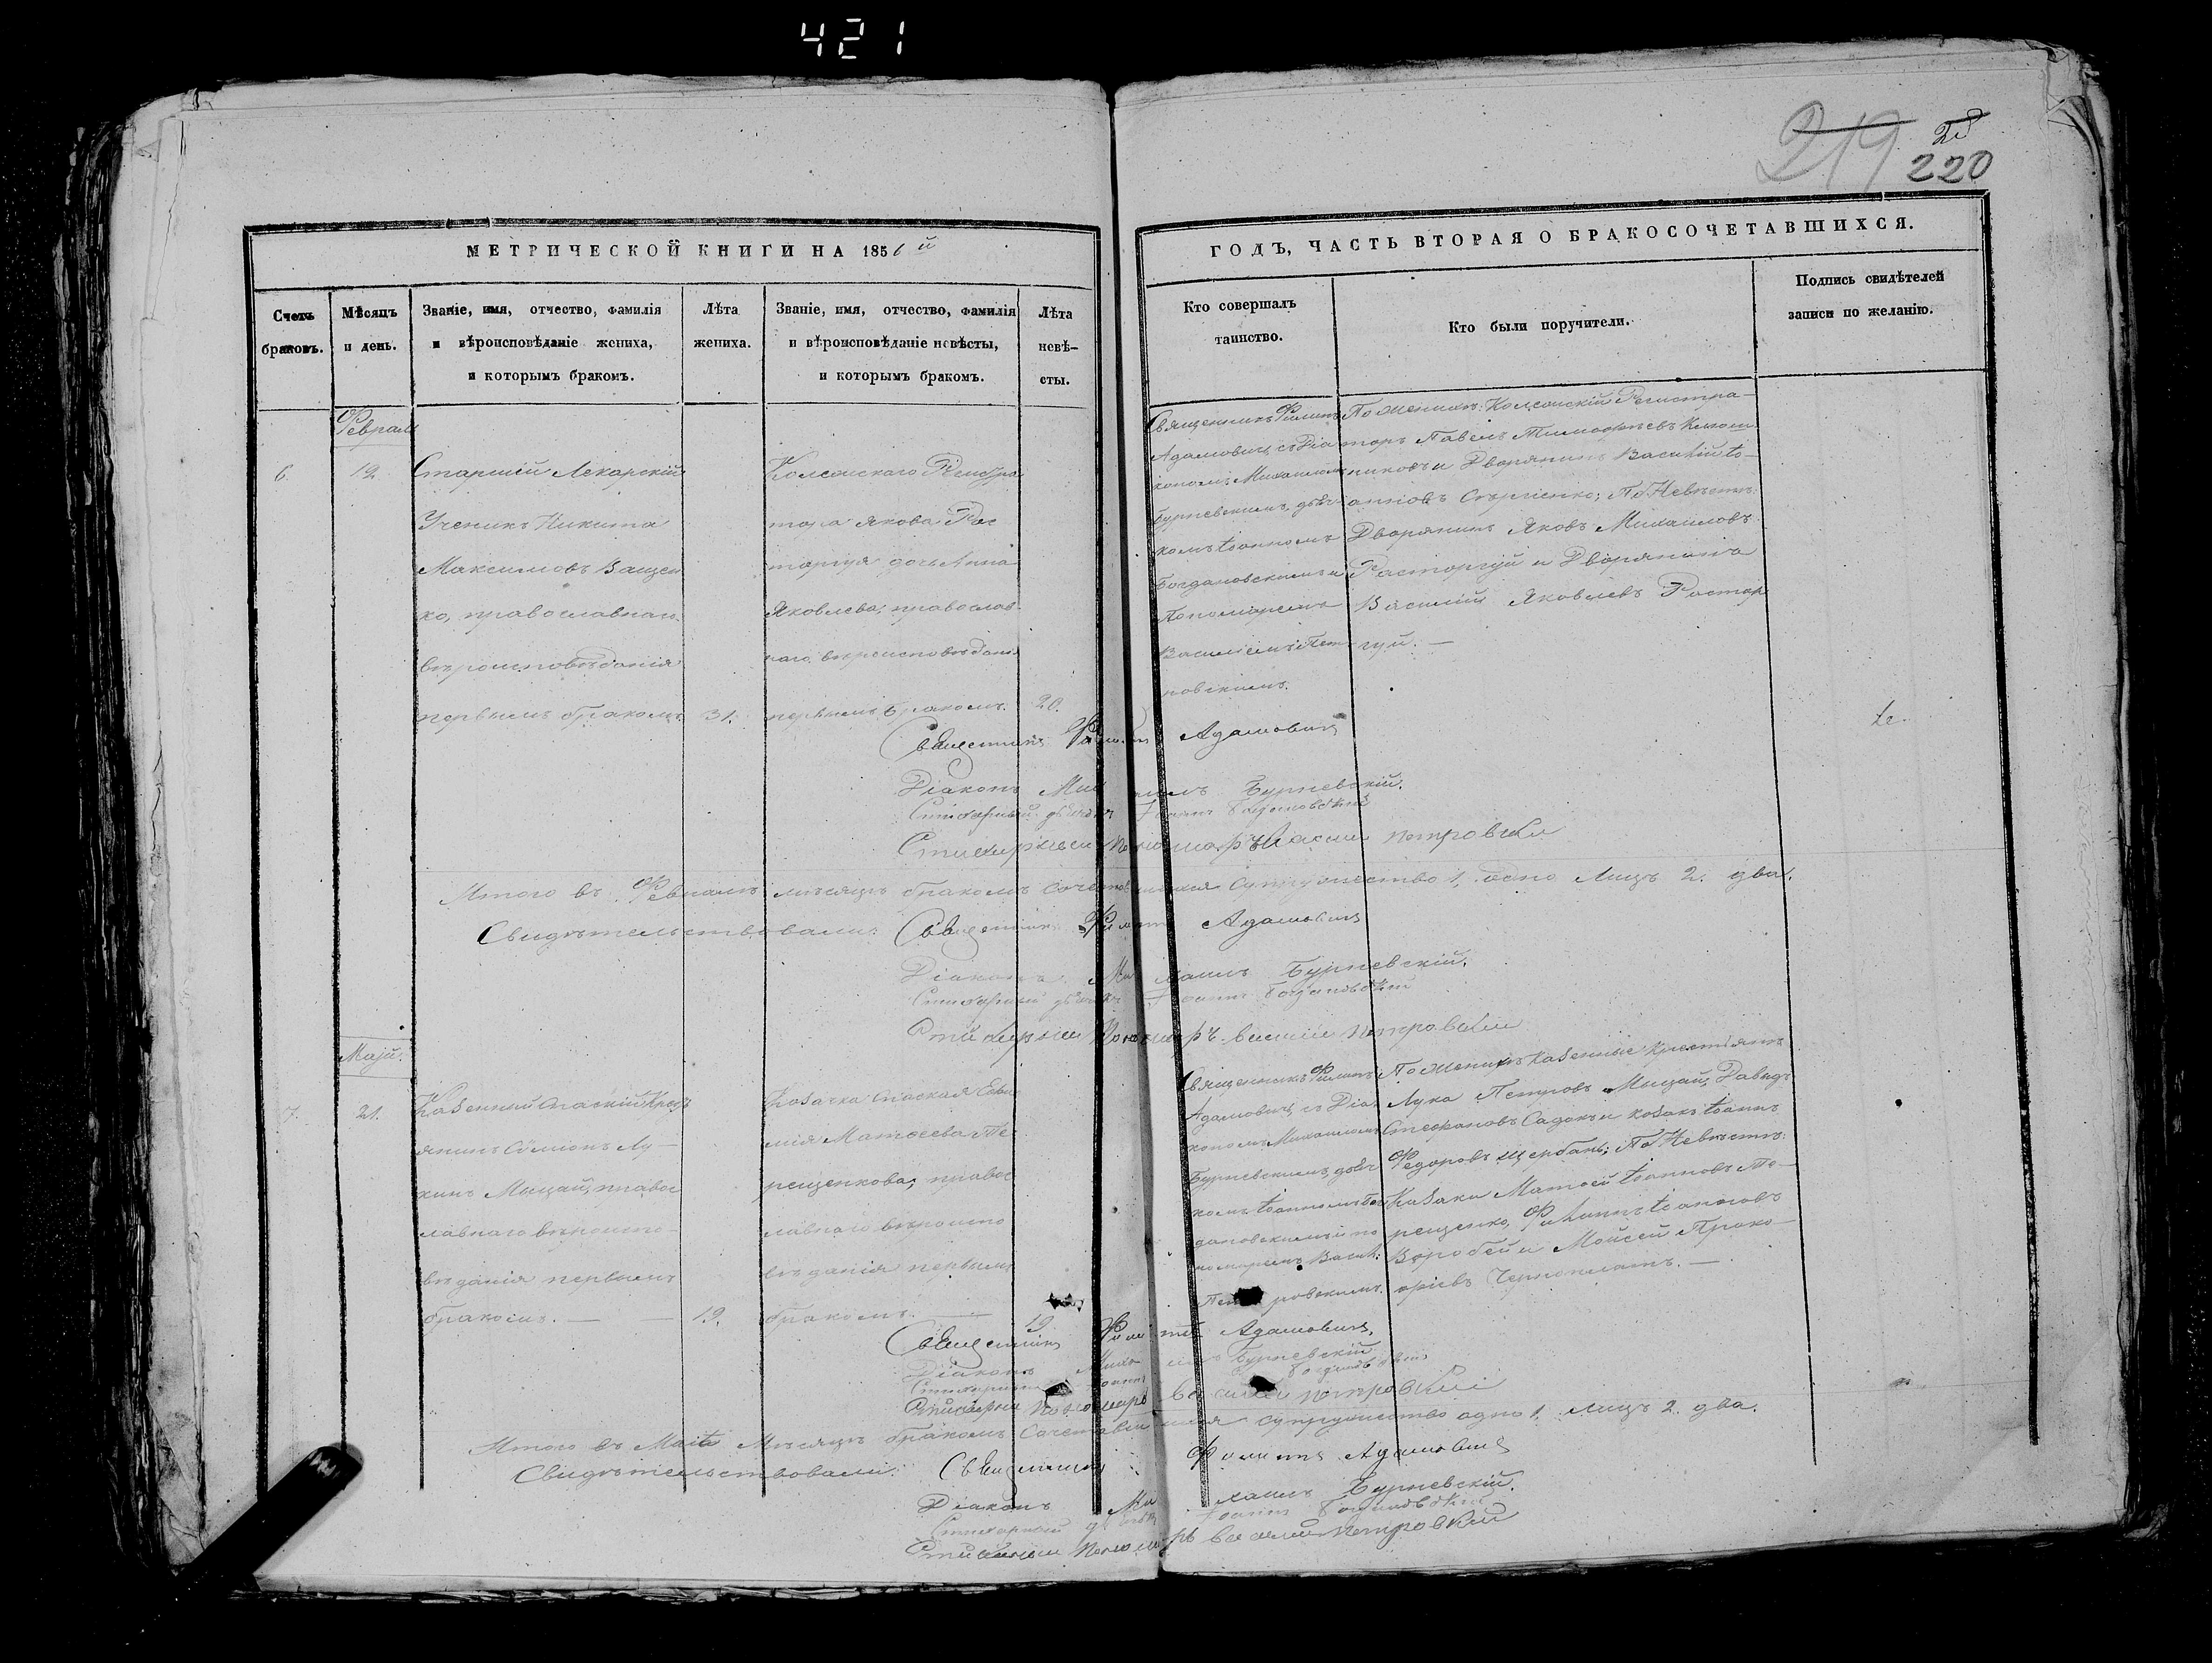 421
219
220
МЕТРИЧЕСКОЙ КНИГИ НА 1856й
ГОДЪ, ЧАСТЬ ВТОРАЯ О БРАКОСОЧЕТАВШИХСЯ.
Счетъ
браковъ.
Мѣсяцъ
и день.
Званіе, имя, отчество, фамилія
и вѣроисповѣданіе жениха,
и которымъ бракомъ.
Лѣта
жениха.
Званіе, имя, отчество, фамилія
и вѣроисповѣданіе невѣсты,
и которымъ бракомъ.
Лѣта
невѣ-
сты.
Кто совершалъ
таинство.
Кто были поручители.
Подпись свидѣтелей
записи по желанію.
6
Февраль
12
Старшій Лекарскій
Ученикъ Никита
Максимовъ Ващен
ко, православнаго
вѣроисповѣданія
первымъ бракомъ
31.
Колежскаго Регистра
тора Якова Рос
торгуя дочь Анна
Яковлева, православ
наго вѣроисповѣданія
первымъ бракомъ.
20.
Священникъ Филиппъ
Адамовичъ съ Діа
кономъ Михаиломъ
Бурневскимъ, дьяч
комъ Іоанномъ
Богдановскимъ и
Пономаремъ
Василіемъ Пет
ровскимъ.
По Женихѣ: Колежскій Регистра-
торъ Павелъ Тимофѣевъ
и Дворянинъ Василій Іо-
анновъ Сергіенко; По Невѣстѣ:
Дворянинъ Яковъ Михаиловъ
Расторгуй и Дворянинъ
Василій Яковлевъ Растор
гуй. —
Священникъ Филиппъ Адамовичъ
Діаконъ Михаилъ Бурневскій.
Стихарный дьячокъ Іоаннъ Богдановскій
Стихарный Пономарь Василій Петровскій
Итого въ Февралѣ мѣсяцѣ бракомъ сочетавшихся супружество 1, одно Лицъ 2. два.
Свидѣтельствовали: Священникъ Филиппъ Адамовичъ
Діаконъ Михаилъ Бурневскій.
Стихарный дьячокъ Іоаннъ Богдановскій
Стихарный Пономарь Василій Петровскій
7.
Маій.
21.
Казенный Крест
янинъ Симіонъ Лу-
кинъ Мицай, правос
лавнаго вѣроиспо-
вѣданія первымъ
бракомъ. —
19.
Козачка
Матѳеева Те
рещенкова, правос
лавнаго вѣроиспо
вѣданія первымъ
бракомъ. —
19
Священникъ Филиппъ
Адамовичъ съ Діа
кономъ Михаиломъ
Бурневскимъ, дьяч
комъ Іоанномъ Бог
дановскимъ и по
номаремъ Васил:
Петровскимъ.
По Женихѣ Казенные Крестьяне
Лука Петровъ Мицай, Давидъ
Стефановъ Садокъ и козакъ Іоаннъ
Федоровъ Щербань; По Невѣстѣ:
Казаки Матѳей Іоанновъ Те-
рещенко, Филиппъ Іоанновъ
Воробей и Моисей Проко-
фіевъ —
Священникъ Филиппъ Адамовичъ,
Діаконъ Михаилъ Бурневскій
Стихарный Іоаннъ Богдановскій
Стихарный Пономарь Василій Петровскій
Итого въ Маіѣ Мѣсяцѣ бракомъ Сочетавшихся супружество одно 1. лицъ 2. два.
Свидѣтельствовали: Священникъ Филиппъ Адамовичъ
Діаконъ Михаилъ Бурневскій.
Стихарный дьячокъ Іоаннъ Богдановскій
Стихарный Пономарь Василій Петровскій